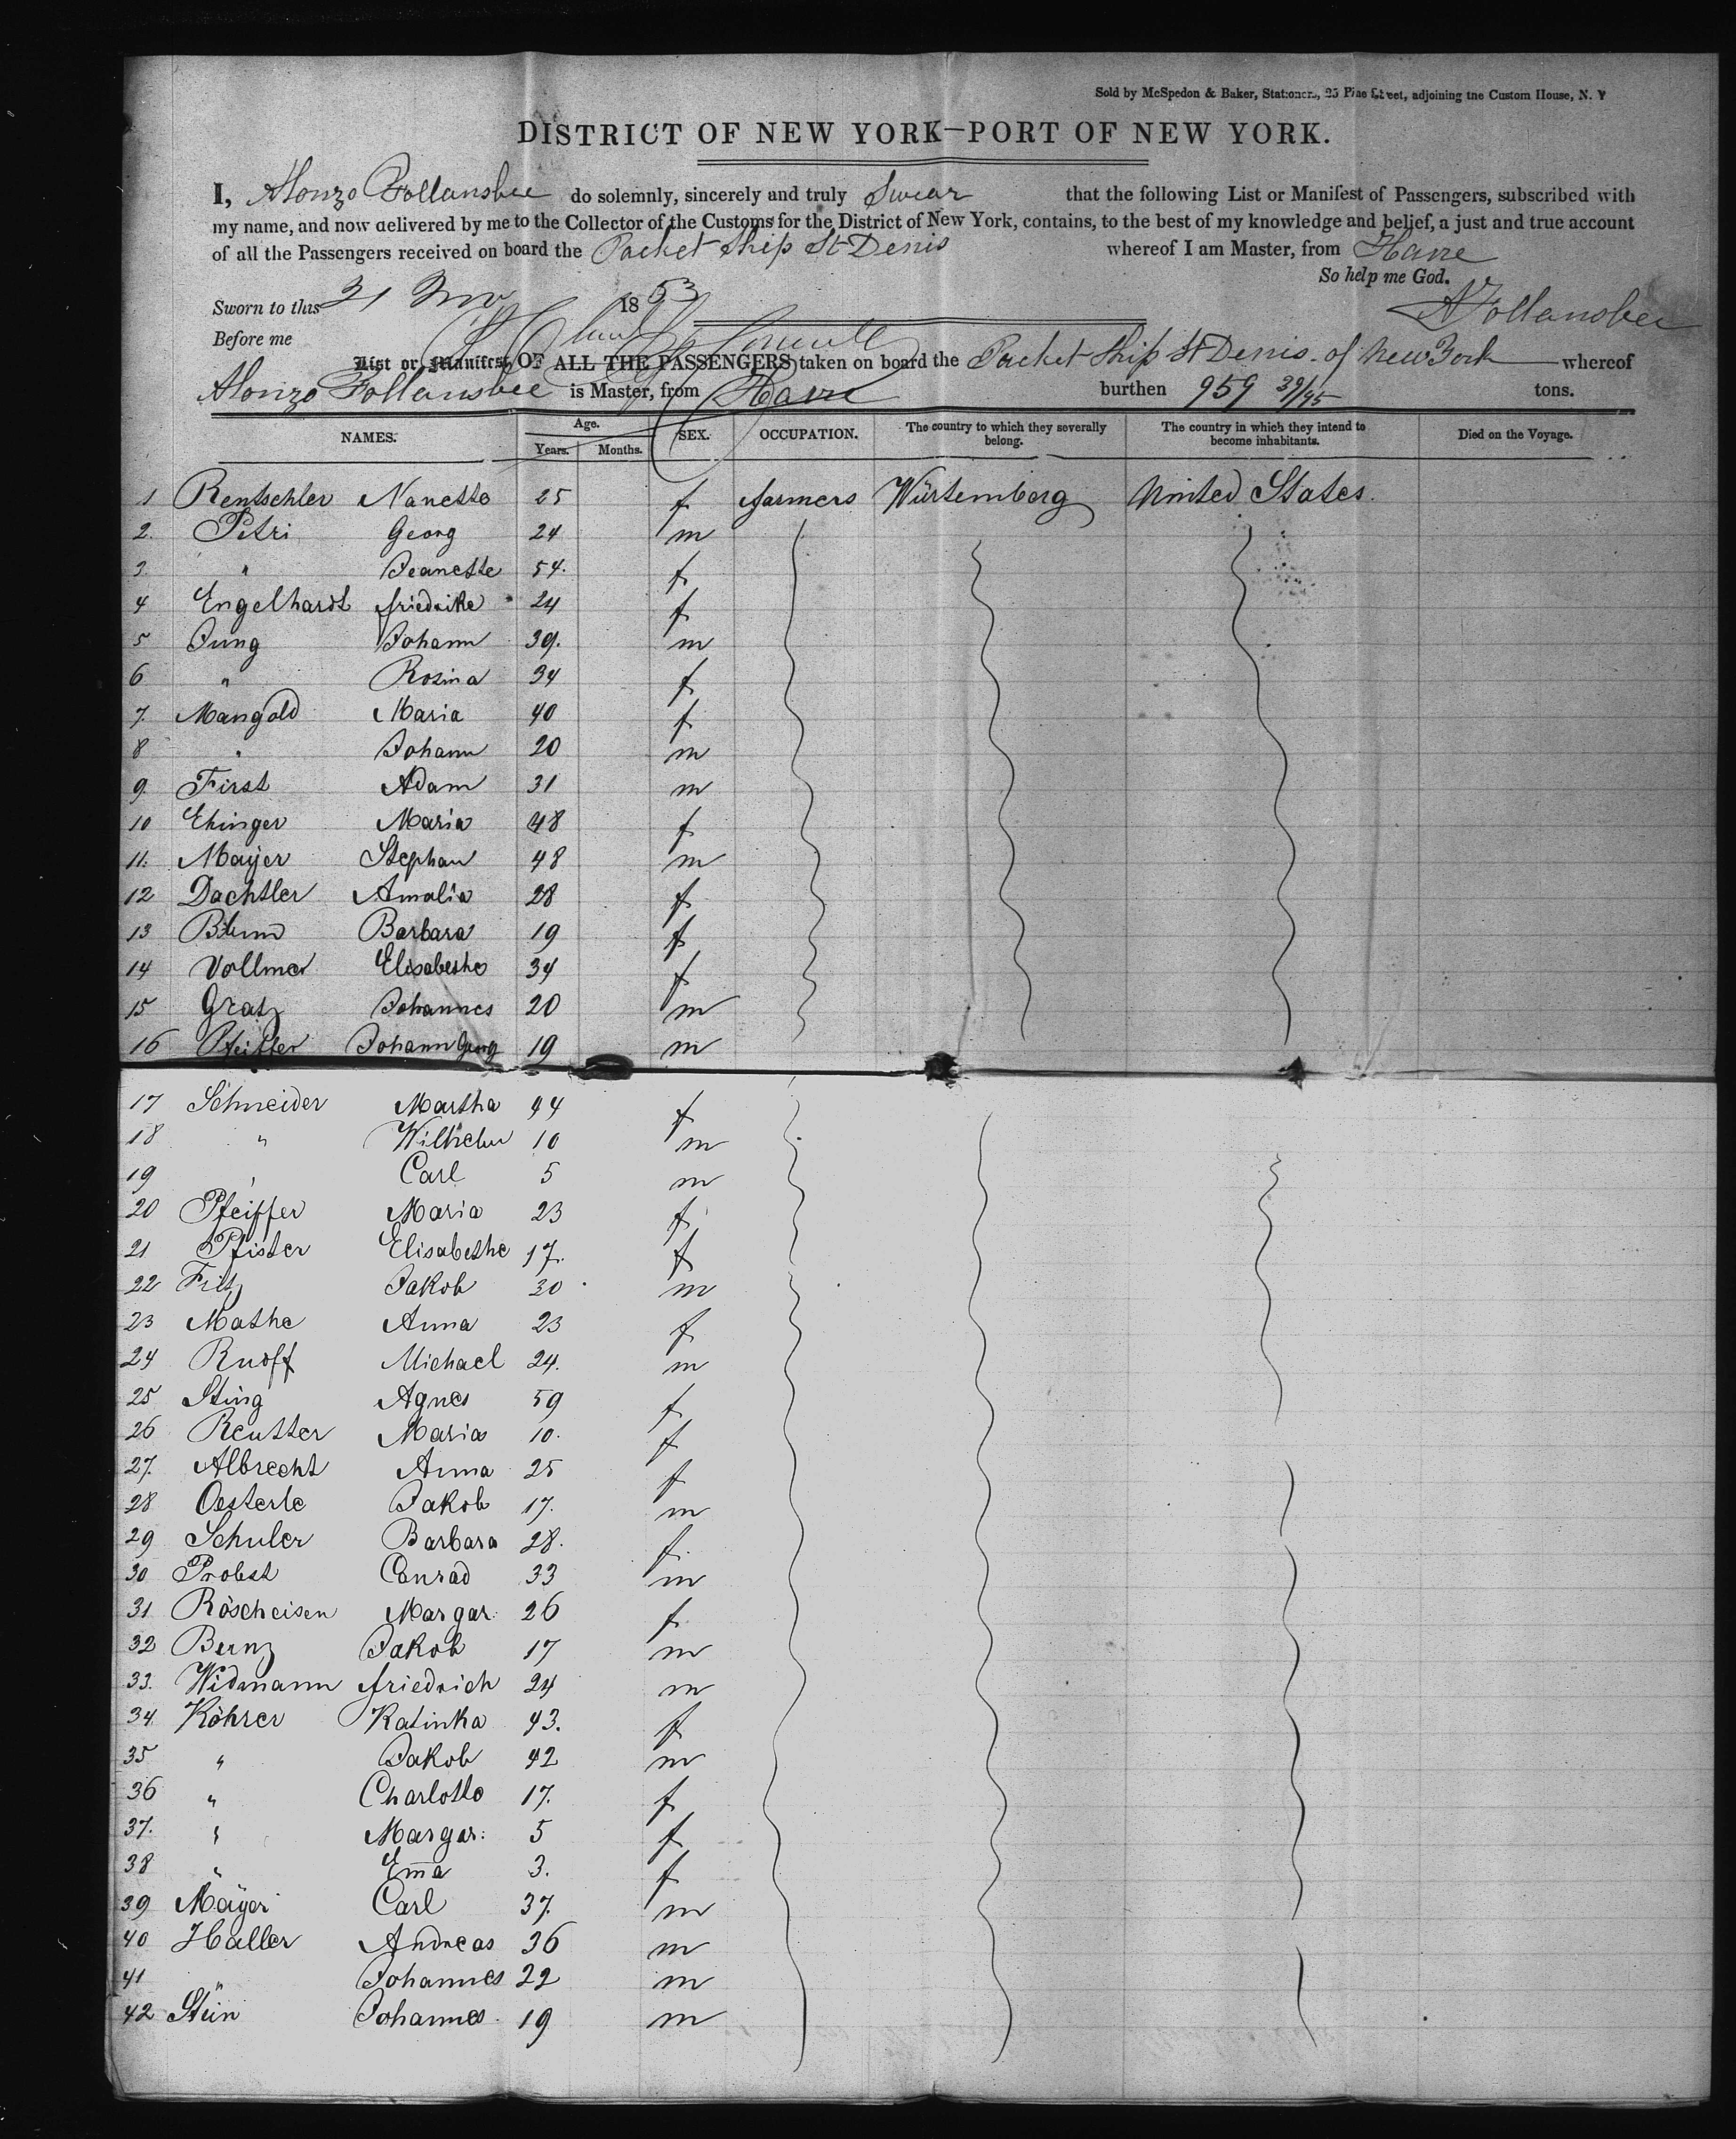 Sold by McSpedon & Baker, Stationers, 25 Pine Street, adjoining the Custom House, N. Y
DISTRICT OF NEW YORK—PORT OF NEW YORK.
I, Alonzo Follansbee do solemnly, sincerely and truly Swear that the following List or Manifest of Passengers, subscribed with
my name, and now delivered by me to the Collector of the Customs for the District of New York, contains, to the best of my knowledge and belief, a just and true account
of all the Passengers received on board the Packet Ship St Denis whereof I am Master, from Havre
So help me God.
Sworn to this 21 Nov 1853 A Follansbee
Before me
List or Manifest OF ALL THE PASSENGERS taken on board the Packet Ship St Denis of New York whereof
Alonzo Follansbee is Master, from Havre burthen 959 39/95 tons.
NAMES. Age. Years. Months. SEX. OCCUPATION. The country to which they severally belong. The country in which they intend to become inhabitants. Died on the Voyage.
1 Rentschler Nanette 25 f farmers Würtemberg United States.
2. Petri Georg 24 m
3. " Jeanette 54. f
4 Engelhardt friedrike 24 f
5 Jung Johann 39. m
6 " Rosina 34 f
7. Mangold Maria 40 f
8 " Johann 20 m
9. First Adam 31 m
10 Ehinger Maria 48 f
11. Mayer Stephan 48 m
12 Dachtler Amalia 28 f
13 Barbara 19 f
14 Vollmer Elisabethe 34 f
15 Gratz Johannes 20 m
16 Pfeiffer Johann Georg 19 m
17 Schneider Martha 44 f
18 " Wilhelm 10 m
19 " Carl 5 m
20 Pfeiffer Maria 23 f
21 Pfister Elisabethe 17. f
22 Filtz Jakob 30 m
23 Mathe Anna 23 f
24 Ruoff Michael 24. m
25 Sting Agnes 59 f
26 Reutter Maria 10. f
27. Albrecht Anna 25 f
28 Oesterle Jakob 17. m
29 Schuler Barbara 28. f
30 Probst Conrad 33 m
31 Röscheisen Margar. 26 f
32 Benz Jakob 17 m
33. Widmann friedrich 24 m
34 Köhrer Katinka 43. f
35 " Jakob 42 m
36 " Charlotte 17. f
37. " Margar: 5 f
38 " Em̄a 3. f
39 Mayer Carl 37. m
40 Haller Andreas 36 m
41 " Johannes 22 m
42 Stein Johannes 19 m